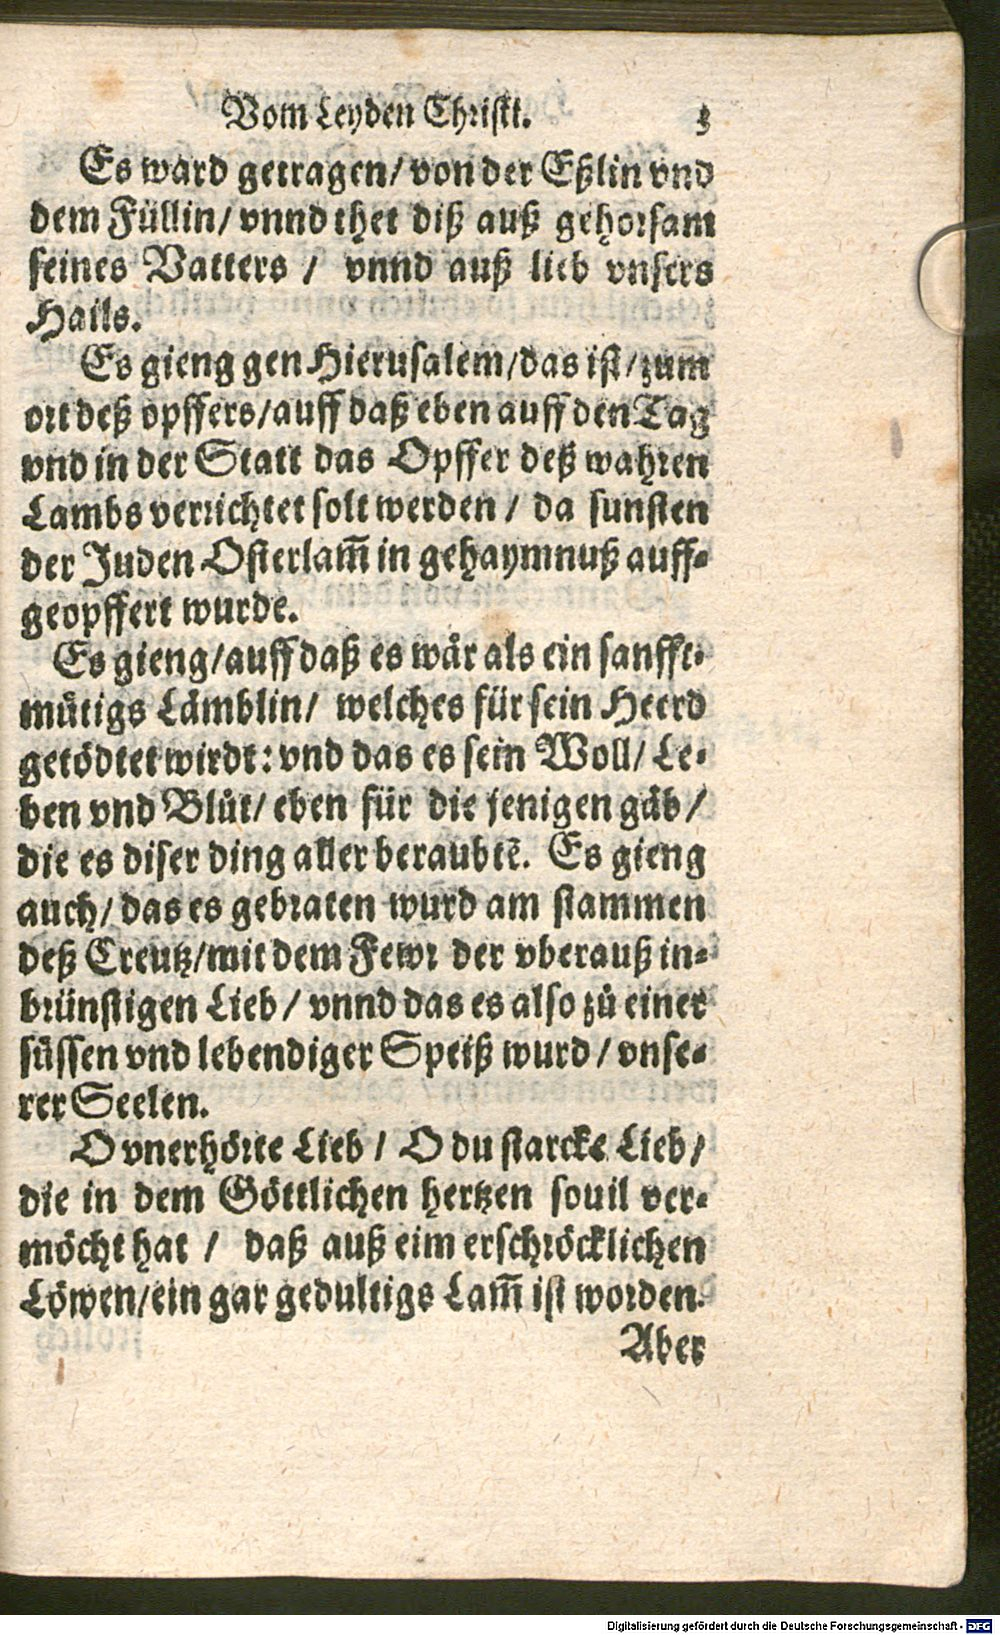 Vom Leyden Christi. 3
Es ward getragen/ von der Eßlin vnd
dem Füllin/ vnnd thet diß auß gehorsam
seines Vatters / vnnd auß lieb vnsers
Hails.
Es gieng gen Hierusalem/das ist/zum
ort deß opffers/auff daß eben auff den Tag
vnd in der Statt das Opffer deß wahren
Lambs verrichtet solt werden / da sunsten
der Juden Osterlam̄ in gehaymnuß auff⸗
geopffert wurde.
Es gieng/auff daß es wär als ein sanfft⸗
muͤtigs Lämblin/ welches für sein Heerd
getödtet wirdt: vnd das es sein Woll/ Le⸗
ben vnd Bluͤt/ eben für die jenigen gäb/
die es diser ding aller beraubtē. Es gieng
auch/ das es gebraten wurd am stammen
deß Creutz/mit dem Fewr der vberauß in⸗
brünstigen Lieb / vnnd das es also zuͤ einer
suͤssen vnd lebendiger Speiß wurd / vnse⸗
rer Seelen.
O vnerhörte Lieb / O du starcke Lieb/
die in dem Göttlichen hertzen souil ver⸗
möcht hat / daß auß eim erschröcklichen
Löwen/ein gar gedultigs Lam̄ ist worden.
Aber
Digitalisierung gefördert durch die Deutsche Forschungsgemeinschaft - DFG